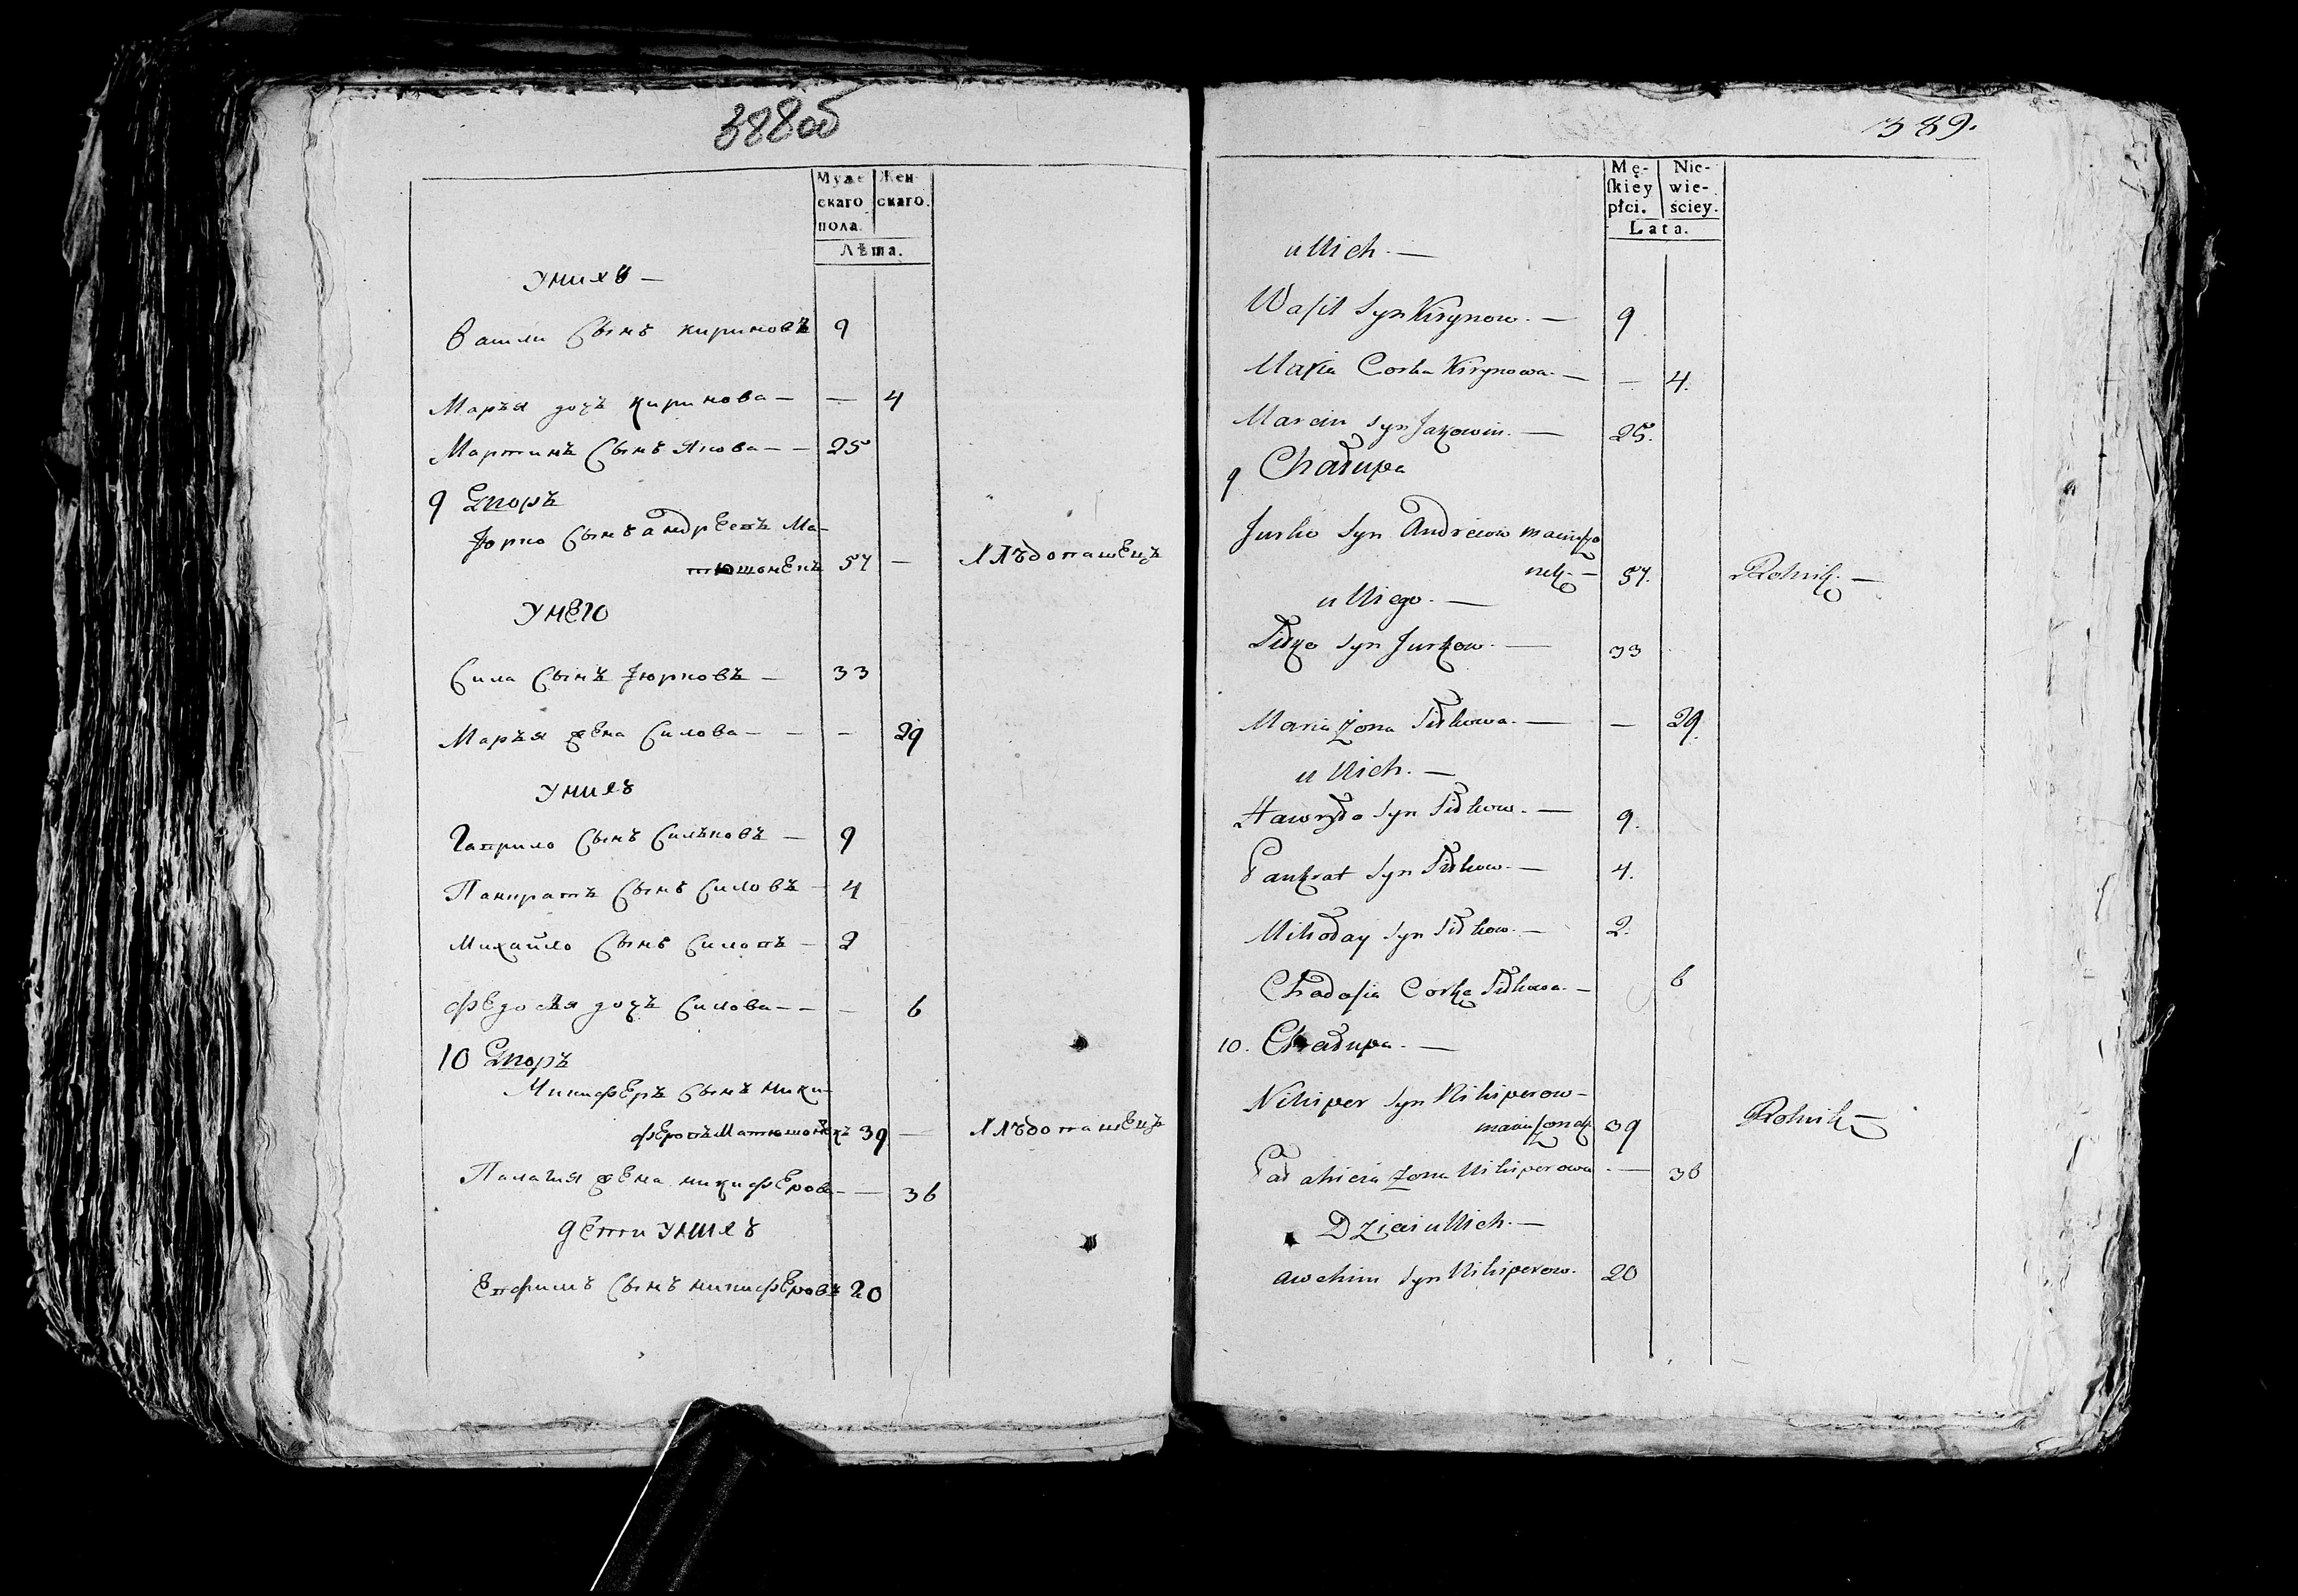 388об
Муже
скаго
пола.
Жен
скаго.
Лѣта.
Унихъ —
Васили Сынъ Кириновъ 9
Марья дочь Киринова — — 4
Мартинъ Сынъ Якова — — 25
9 Дворъ
Юрко Сынъ андрЕевъ Ма-
тюшонЕкъ 57 — ХлѣбопашЕцъ
УнЕго
Сила Сынъ Юрковъ — 33
Марья жЕна Силова — — — 29
Унихъ
Гаврило Сынъ Сильковъ — 9
Панкратъ Сынъ Силовъ — 4
Михайло Сынъ Силовъ — 2
ФЕдосья дочь Силова — — — 6
10 Дворъ
НикифЕръ Сынъ Ники-
фЕровъ МатюшонЕкъ 39 — ХлѣбопашЕцъ
Палагия жЕна никифЕрова — — 36
дЕти Унихъ
Евфимъ Сынъ никифЕровъ 20
389.
Mę-
ſkiey
płci.
Nie-
wie-
ściey.
Lata.
u Nich. —
Waſil Syn Kirynow. — 9
Maryia Corka Kirynowa. — — 4.
Marcin Syn Jakowin. — 25.
9 Chałupa
Jurko Syn Andreiow maciuſzo
nek. — 57. Rolnik. —
u Niego. —
Siłko Syn Jurkow. — 33
Maria Zona Siłkowa. — — 29.
u Nich. —
Hawryło Syn Siłkow. — 9.
Pankrat Syn Siłkow. — 4.
Mikołay Syn Siłkow. — 2.
Chadoſia Corka Siłkowa. — 6
10. Chałupa. —
Nikiper Syn Nikiperow —
maciuſzonek 39 Rolnik —
Pałahieia Zona Nikiperowa. — 36
Dzieci u Nich. —
Awchim Syn Nikiperow. 20